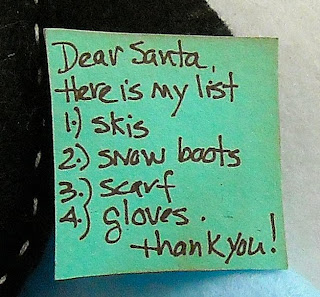 Dear Santa,
Here is my list
1.) skis
2.) snow boots
3.) scarf
4.) gloves.
thank you!